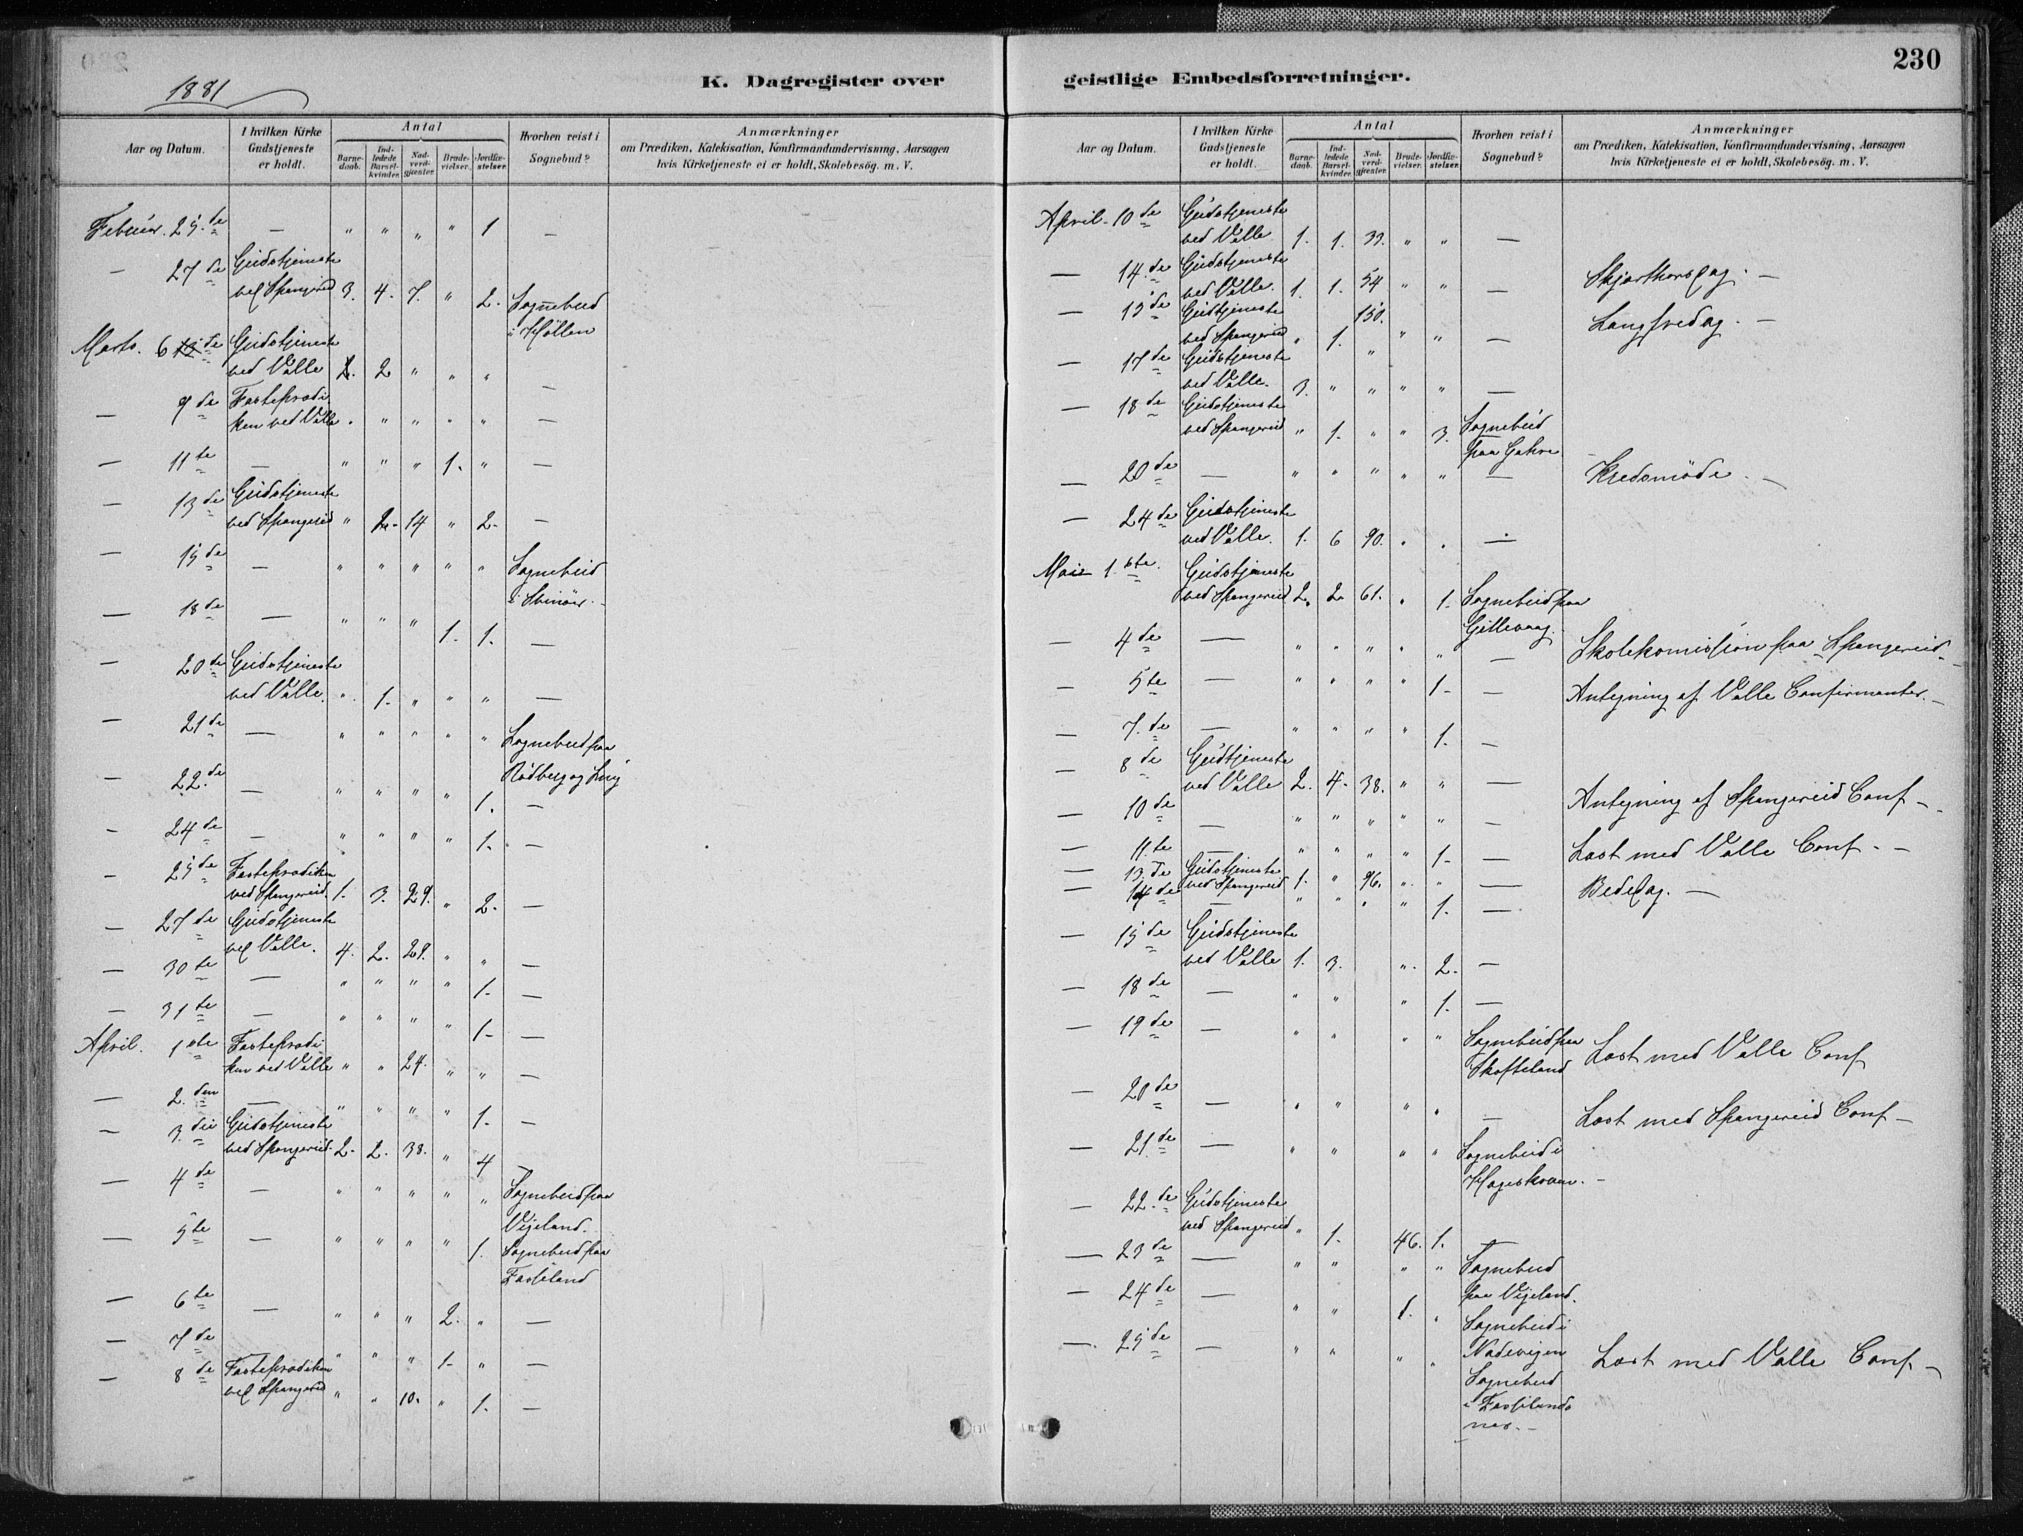 230
1881
K. Dagregister over geistlige Embedsforretninger.
Aar og Datum.
I hvilken Kirke Gudstjeneste er holdt.
Antal
Barne-daab.
Ind-ledede Barsel-kvinder.
Nad-verd-gjæster.
Brude-vielser.
Jordfæ-stelser.
Hvorhen reist i Sognebud?
Anmærkninger
om Prædiken, Katekisation, Konfirmandundervisning, Aarsagen
hvis Kirketjeneste ei er holdt, Skolebesøg. m. V.
Februar. 25.de — " " " " 1 —
— 27de Gudstjeneste ved Spangereid 3. 4. 7. " 2. Sognebud i Høllen
Marts. 6 de Gudstjeneste ved Valle 2. 2 " " " —
— 9de Fasteprædiken ved Valle " " " " " —
— 11te — " " " 1. " —
— 13de Gudstjeneste ved Spangereid " 2. 14 " 2. —
— 15de — " " " " " Sognebud i Svinøer. —
— 18de — " " " 1. 1. —
— 20de Gudstjeneste ved Valle. " 1. " " " —
— 21de — " " " " " Sognebud paa Rødberg og
— 22.de — " " " " 1. —
— 24de — " " " " 1. —
— 25de Fasteprædiken ved Spangereid. 1. 3. 29. " 2. —
— 27de Gudstjeneste ved Valle. 4. 2. 28. " " —
— 30te — " " " " 1. —
— 31te — " " " " 1. —
April. 1ste Fasteprædiken ved Valle " " 24. " " —
— 2.den — " " " " 1. —
— 3.die Gudstjeneste ved Spangereid 2. 2. 38. " 4 —
— 4de — " " " " " Sognebud paa Vigeland.
— 5te — " " " " 1. Sognebud paa Fasseland
— 6te — " " " 2. " —
— 7de " " " 1. " —
— 8de Fasteprædiken ved Spangereid " " 10. " 1. —
Aar og Datum.
I hvilken Kirke Gudstjeneste er holdt.
Antal
Barne-daab.
Ind-ledede Barsel-kvinder.
Nad-verd-gjæster.
Brude-vielser.
Jordfæ-stelser.
Hvorhen reist i Sognebud?
Anmærkninger
om Prædiken, Katekisation, Konfirmandundervisning, Aarsagen
hvis Kirketjeneste ei er holdt, Skolebesøg. m. V.
April. 10de Gudstjeneste ved Valle 1. 1. 33. " " —
— 14.de Gudstjeneste ved Valle. 1. 1. 54 " " — Skjærthorsdag. —
— 15de Gudstjeneste ved Spangereid " 1. 150. " " — Langfredag. —
— 17de Gudstjeneste ved Valle. 3. " " " " —
— 18de Gudstjeneste ved Spangereid " 1. " " 3. Sognebud paa Gahre
— 20de — " " " " " — Kredsmøde. —
— 24de Gudstjeneste ved Valle. 1. 6 90. " " —
Mai 1.ste. Gudstjeneste ved Spangereid 2. 2. 61. " 1. Sognebud paa Gillevaag.
— 4de — " " " " " — Skolekomission paa Spangereid —
— 5te — " " " " 1. — Antegning af Valle Confirmanter. —
— 7.de — " " " " 1. —
— 8de Gudstjeneste ved Valle 2. 4. 38. " " —
— 10de — " " " " " — Antegning af Spangereid Conf —
— 11.te — " " " " 1. — Læst med Valle Conf. —
— 13.de Gudstjeneste ved Spangereid 1. " 96. " " — Bededag. —
— 14de — " " " " 1. —
— 15de Gudstjeneste ved Valle 1. 3. " 2. —
— 18de — " " " 1. —
— 19de — " " " " Sognebud paa Skofteland Læst med Valle Conf
— 20de — " " " " — Læst med Spangereid Conf —
— 21.de — " " " " Sognebud i Hageskoven. —
— 22.de Gudstjeneste ved Spangereid " 1. 46. 1. —
— 23de — " " " " Sognebud paa Vigeland.
— 24de — " " 1. " Sognebud i Nodevigen
— 25de — " " " " Sognebud i Fasselandsnes. — Læst med Valle Conf —